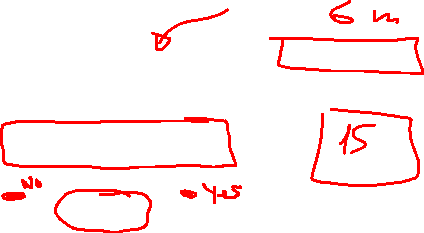 6 m
15
No
Yes